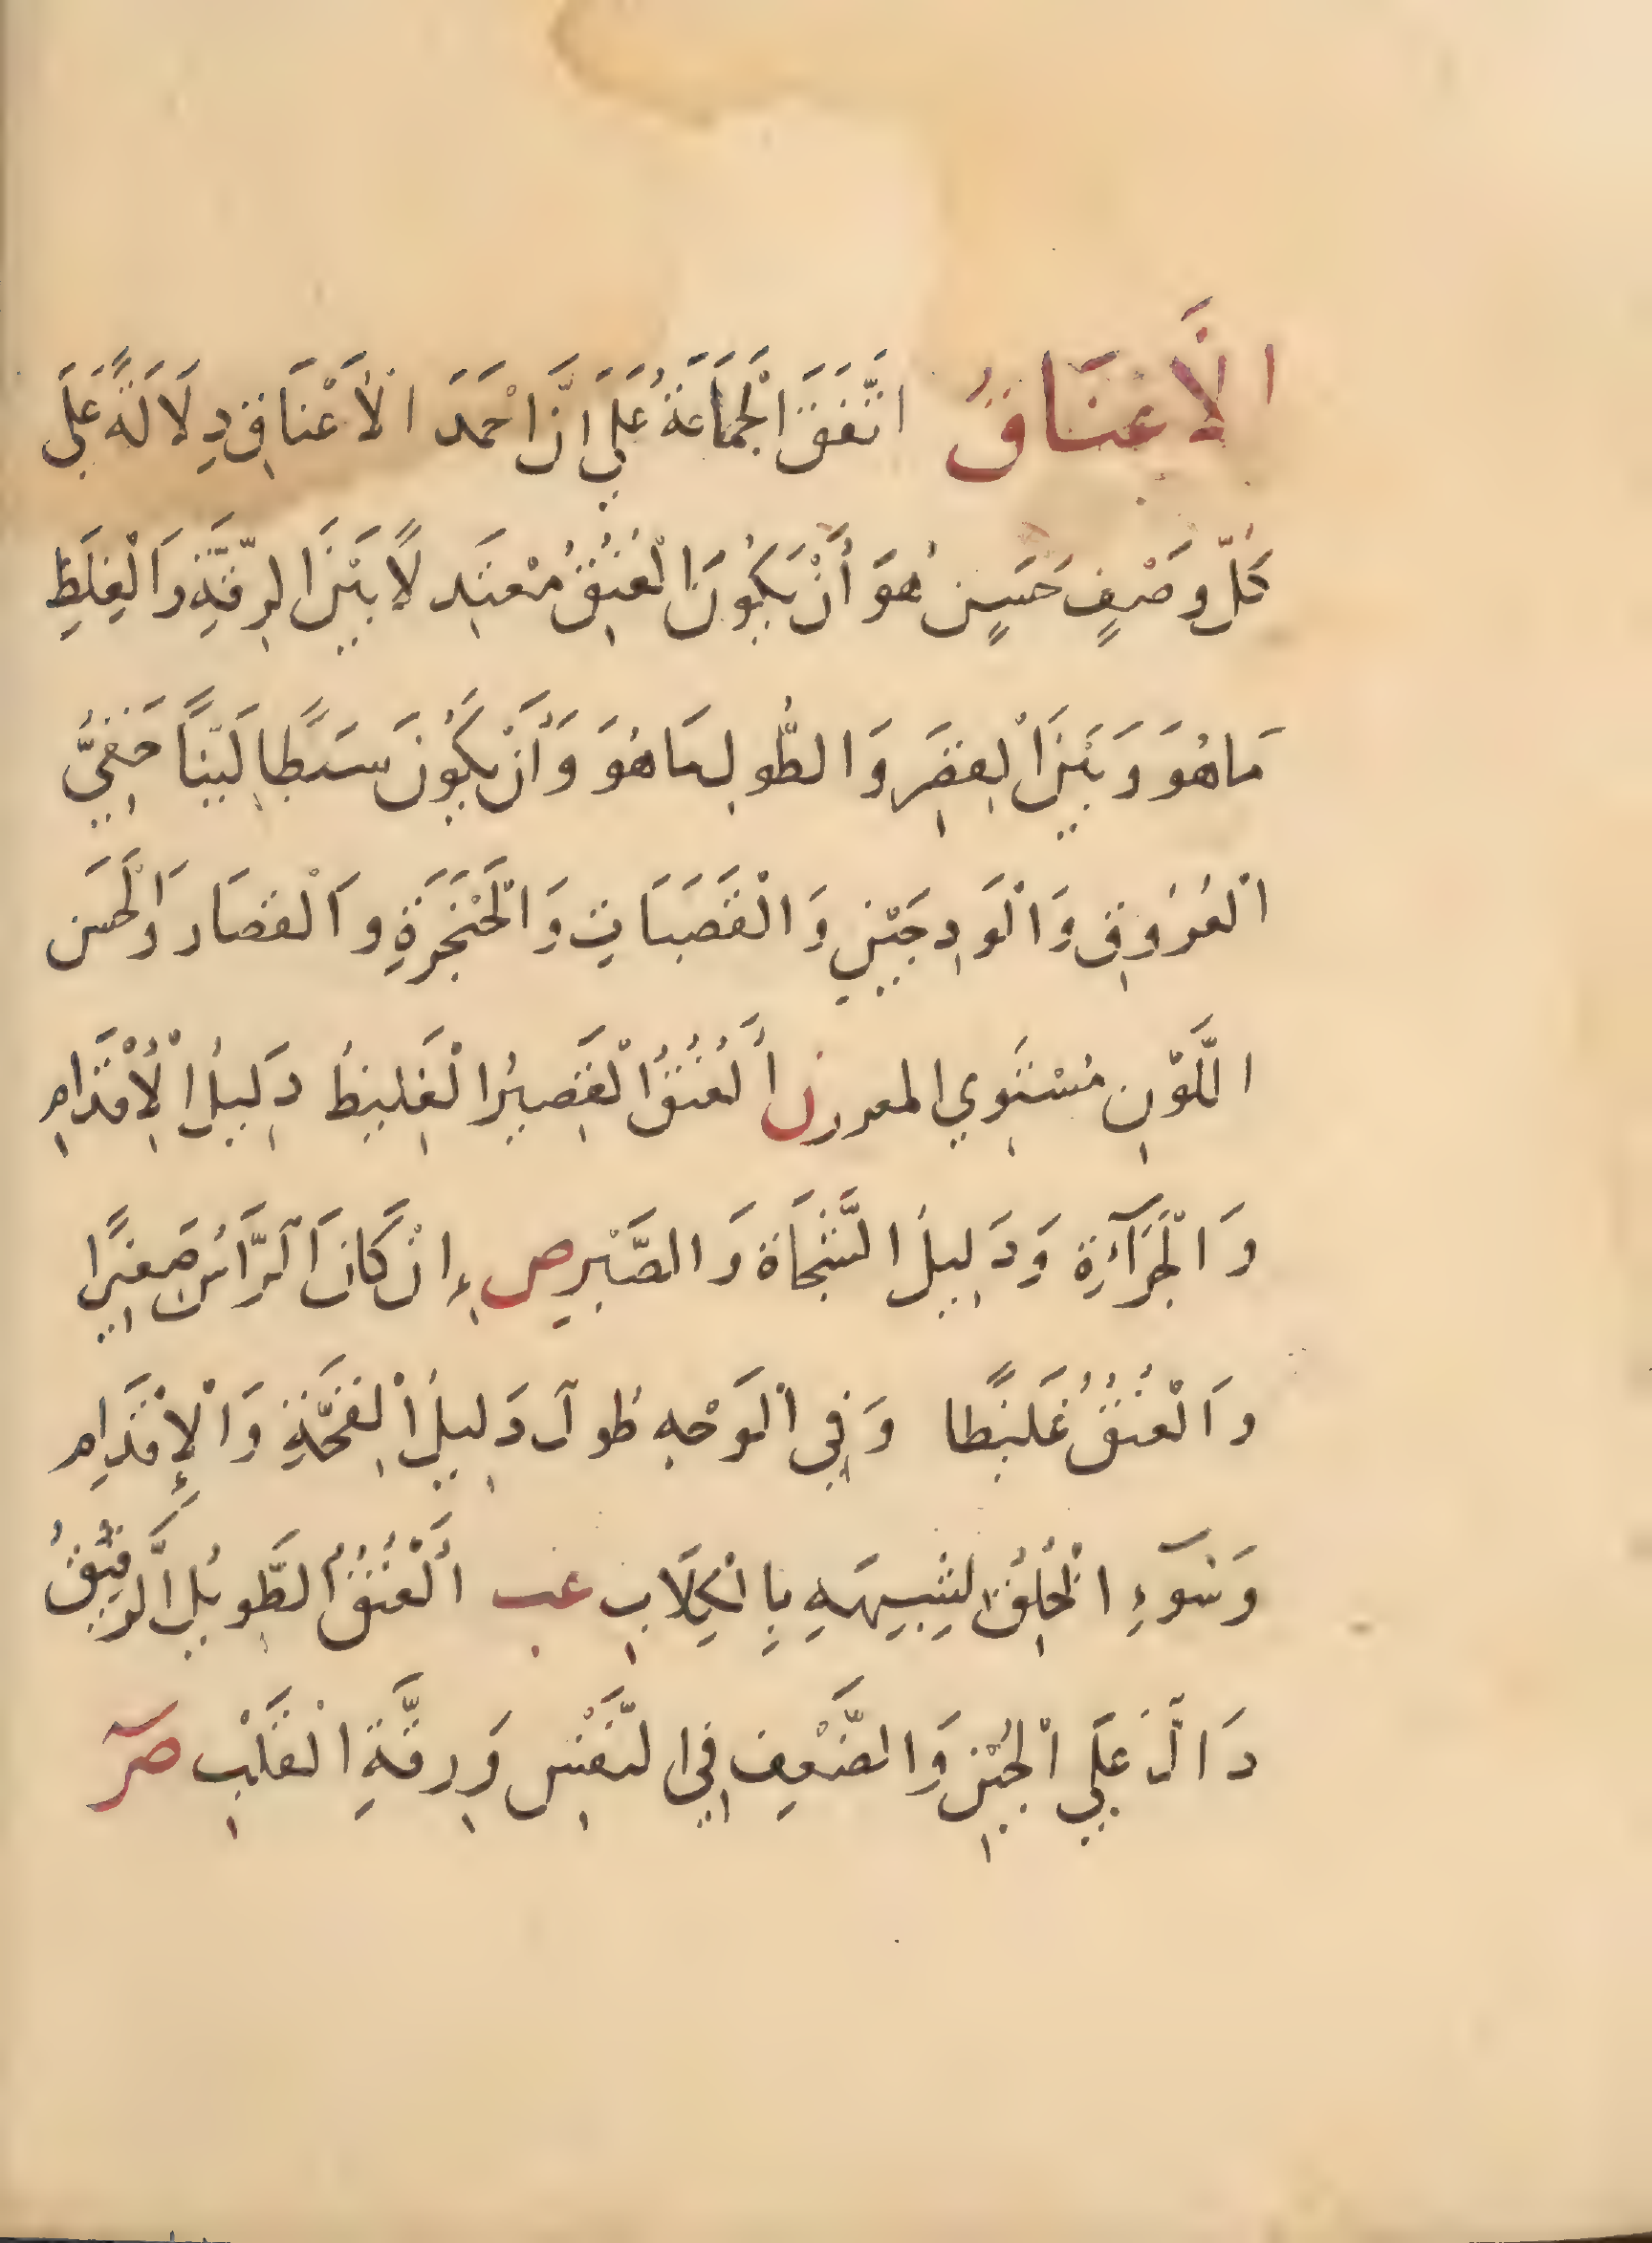 الَأعْنَاقُ اتَّفَقَ الْجَمَاعَةُ عَلَي اَنَّ اَحْمَدَ الأَعْنَاقِ دِلَالَةً عَلَى
كُلِّ وَصْفٍ حَسَنٍ هُوَ أَنْ يَكُونَ الْعُنُقُ مُعْتَدِلًا بَيْنَ الرِّقَّةِ وَالْغِلَظِ
مَا هُوَ وَبَيْنَ الْقِصَرِ وَالطُّولِ مَا هُوَ وَأَنْ يَكُونَ سَبَطًا لَيِّنًا خَفِيَّ
الْعُرُوقِ وَالْوَدِجَيْنِ وَالْقَصَبَاتِ وَالْحَنْجَرَةِ وَالْقصَار وَالْحَسَن
اللَّوْنِ مُسْتَوِي المعرر ن أَلعُنُقُ الْقَصِيرُ الْغَلِيظُ دَلِيلُ الْأِقْدَامِ
وَالْجَرَآءَةِ وَدَلِيلُ الشَّجَاة وَالصَّبْرِ ص إِنْ كَانَ الرَّأسُ صَغِيرًا
وَالْعُنُقُ غَلِيظًا وَفِي الْوَجْهِ طُولٌ دَلِيلُ الْقِحَّةِ وَالْإِقْدَامِ
وَسُوَءِ الْخُلِقُ لِشَبِيهَهِ بِالْكِلَابِ عب أَلْعُنُقُ الطَّوِيلُ الرَّقِيقُ
دَالٌّ عَلَي الْجُبْنِ وَالضَّعْفِ فِي النَّفْسِ وَرِقَّةِ الْقَلْبِ صر